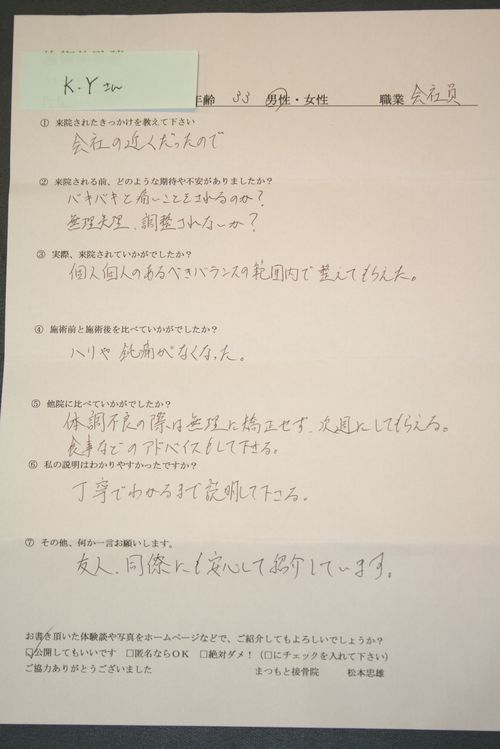 K.Yさん
年齢 33 男性・女性 職業 会社員
① 来院されたきっかけを教えて下さい
会社の近くだったので
② 来院される前、どのような期待や不安がありましたか?
バキバキと痛いことをされるのか?
無理矢理、調整されないか?
③ 実際、来院されていかがでしたか?
個人個人のあるべきバランスの範囲内で整えてもらえた。
④ 施術前と施術後を比べていかがでしたか?
ハリや鈍痛がなくなった。
⑤ 他院に比べていかがでしたか?
体調不良の際は無理に矯正せず、次週にしてもらえる。
食事などのアドバイスもして下さる。
⑥ 私の説明はわかりやすかったですか?
丁寧でわかるまで説明して下さる。
⑦ その他、何か一言お願いします。
友人、同僚にも安心して紹介しています。
お書き頂いた体験談や写真をホームページなどで、ご紹介してもよろしいでしょうか?
☑公開してもいいです □匿名ならOK □絶対ダメ!(□にチェックを入れて下さい)
ご協力ありがとうございました まつもと接骨院 松本忠雄